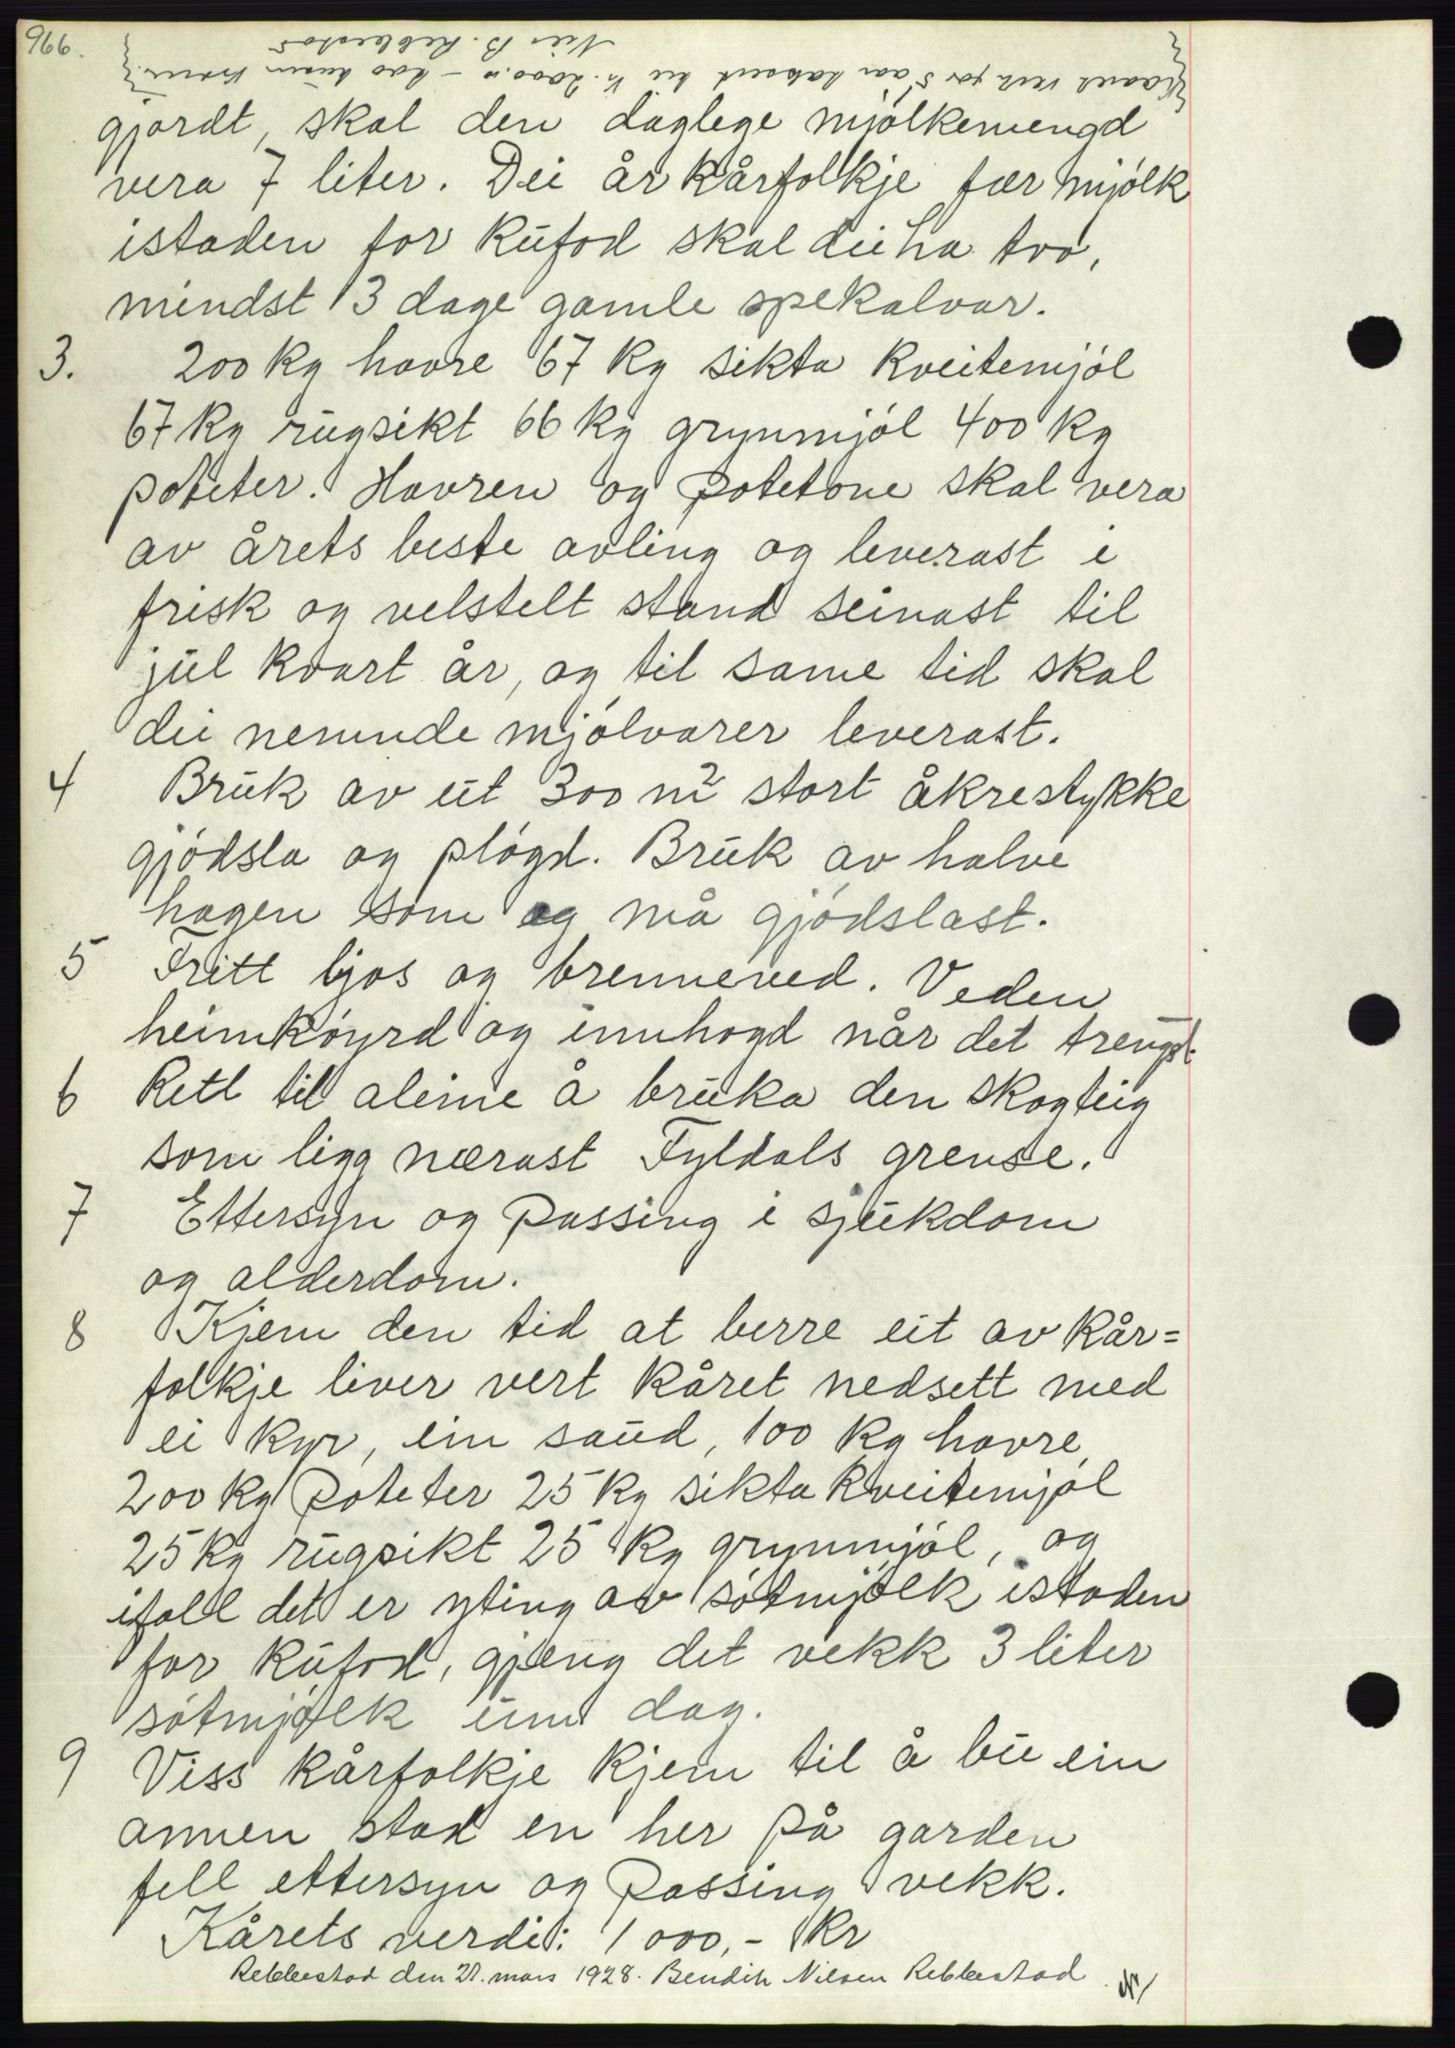 966.
Kaaret verd for 5 aar taksert til kr. 2000.- - två tusen kroner.
Nils B. Rebbestad
gjordt, skal den daglege mjølkemengd
vera 7 liter. Dei år kårfolkje fær mjølk
istaden for kufod skal dei ha tvo,
mindst 3 dage gamle spekalvar.
3. 200 kg havre 67 kg sikta kveitemjøl
67 kg rugsikt 66 kg grynmjøl 400 kg
poteter. Havren og potetone skal vera
av årets beste avling og leverast i
frisk og velstelt stand seinast til
jul kvart år, og til same tid skal
dei nemnde mjølvarer leverast.
4 Bruk av eit 300 m2 stort åkrestykke
gjødsla og pløgd. Bruk av halve
hagen som og må gjødslast.
5 Fritt ljos og brenneved. Veden
heimkøyrd og innhogd når det trengst.
6 Rett til aleine å bruka den skogteig
som ligg nærast Fyldals grense.
7 Ettersyn og passing i sjukdom
og alderdom.
8 Kjem den tid at berre eit av kår=
folkje liver vert kåret nedsett med
ei kyr, ein saud, 100 kg havre,
200 kg poteter 25 kg sikta kveitemjøl
25 kg rugsikt 25 kg grynmjøl, og
ifall det er yting av søtmjølk istaden
for kufod, gjeng det vekk 3 liter
søtmjølk um dag.
9 Viss kårfolkje kjem til å bu ein
annen stad en her på garden
fell ettersyn og passing vekk.
Kårets verdi: 1000,- kr
Rebbestad den 21. mars 1928. Bendik Nilsen Rebbestad